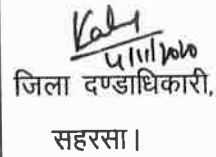 4/11/2020
जिला दण्डाधिकारी,
सहरसा।